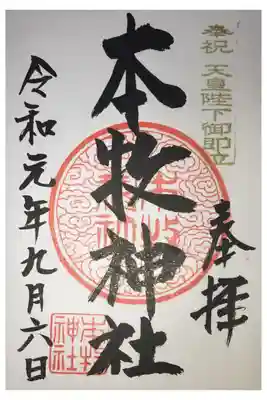 奉祝 天皇陛下御即位
奉拝
本牧神社
令和元年九月六日
本牧神社